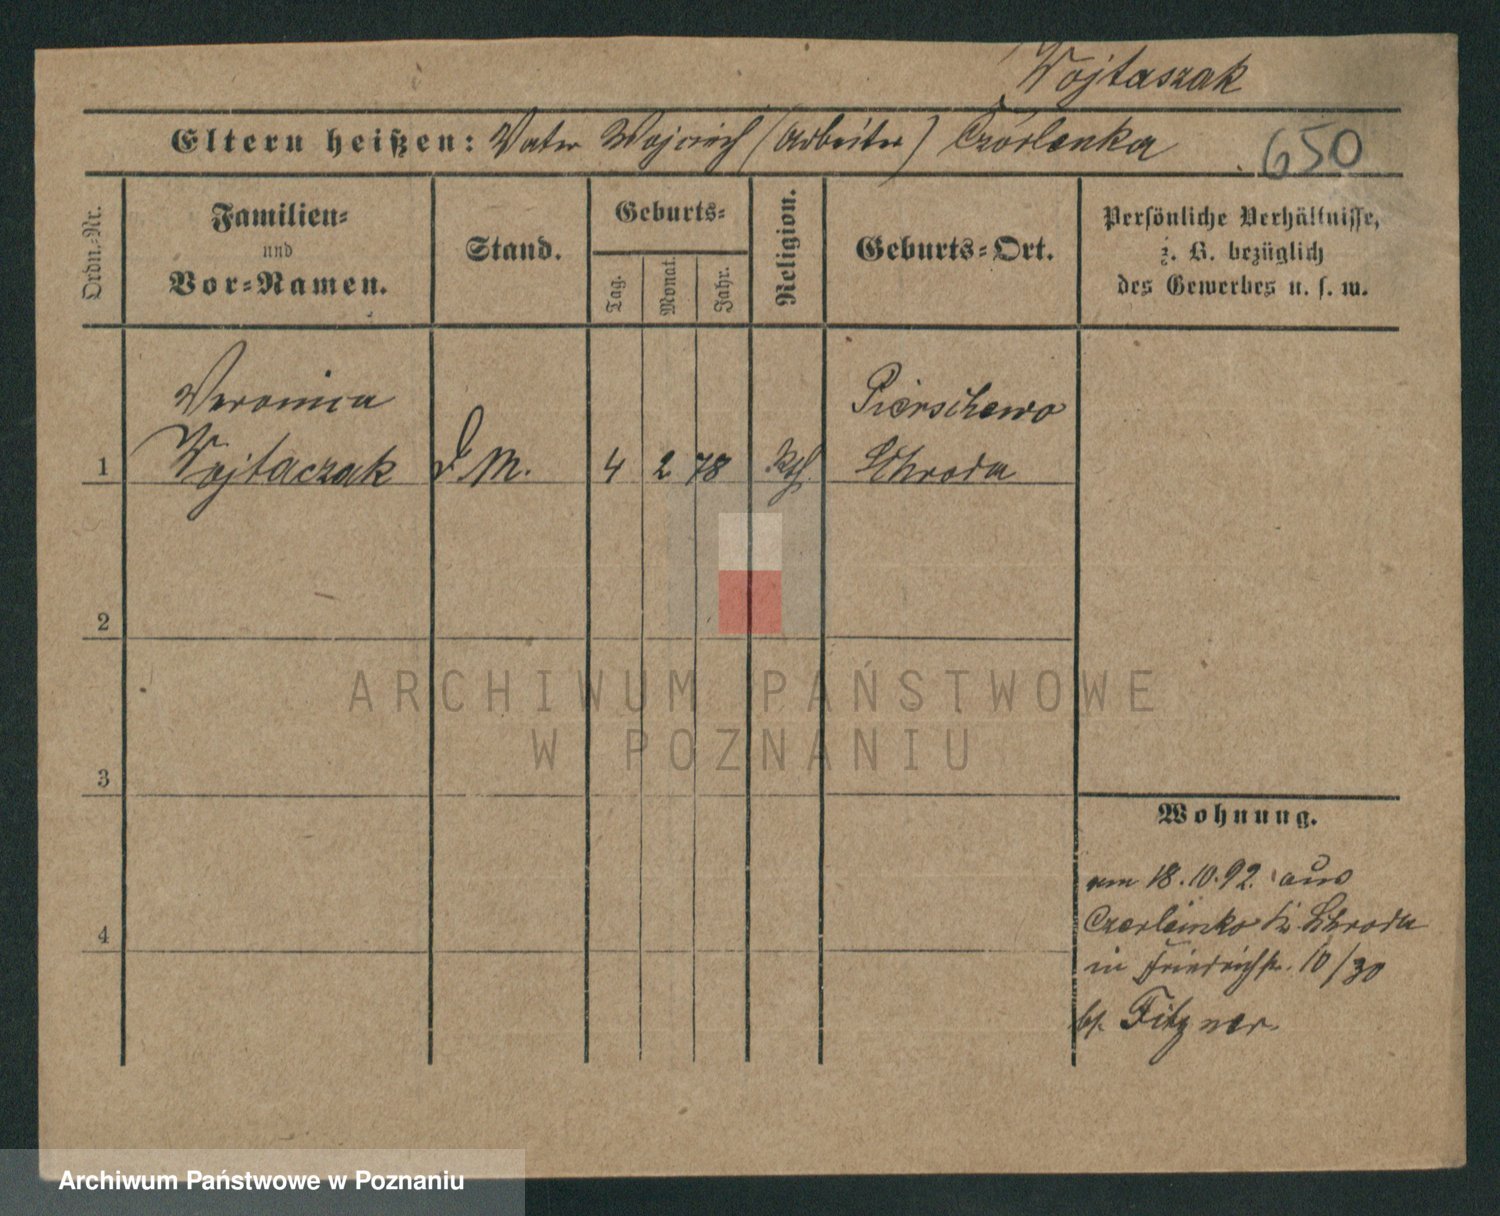 Wojtaszak
Eltern heißen: Vater Wojciech (Arbeiter) Czorlenka
650
Ordn.-Nr.
Familien-
und
Vor-Namen.
Stand.
Geburts-
Tag.
Monat.
Jahr.
Religion.
Geburts-Ort.
Persönliche Verhältnisse,
z. B. bezüglich
des Gewerbes u. s. w.
Veronica
Pierschewo
1 Wojtaczak D. M. 4 2 78 kth. Schroda
2
3
4
Wohnung.
am 18.10.92. aus
Czerleinko Kr. Schroda
in Friedrichstr. 10/30
bei Fitzner
ARCHIWUM PAŃSTWOWE
W POZNANIU
Archiwum Państwowe w Poznaniu